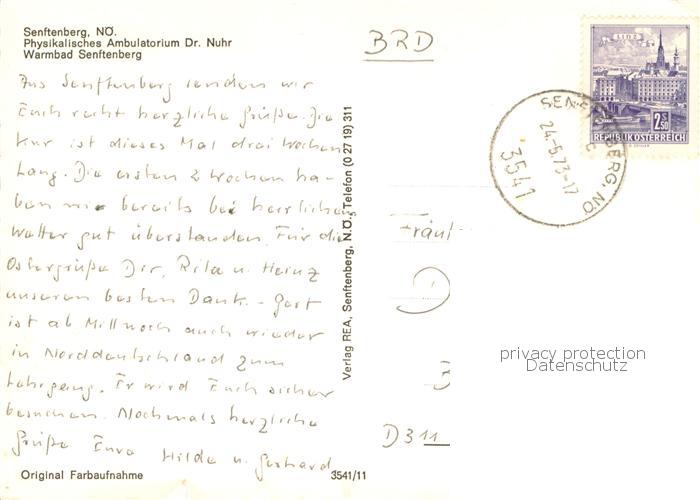 Senftenberg, NÖ.
Physikalisches Ambulatorium Dr. Nuhr
Warmbad Senftenberg
Aus Senftenberg senden wir
Euch recht herzliche Grüße. Die
Kur ist dieses Mal drei Wochen
lang. Die ersten 2 Wochen ha-
ben wir bereits bei herrlichem
Wetter gut überstanden. Für die
Ostergrüße Dir, Rita u. Heinz
unseren besten Dank. - Gert
ist ab Mittwoch auch wieder
in Norddeutschland zum
Lehrgang. Er wird Euch sicher
besuchen. Nochmals herzliche
Grüße Eure Hilde u. Gerhard
Original Farbaufnahme
3541/11
Verlag REA, Senftenberg, N.Ö., Telefon (0 27 19) 311
BRD
LINZ
2.50
REPUBLIK ÖSTERREICH
SENFTENBERG, NÖ
24.-5.73-17
3541
Fräul
D 311
privacy protection
Datenschutz